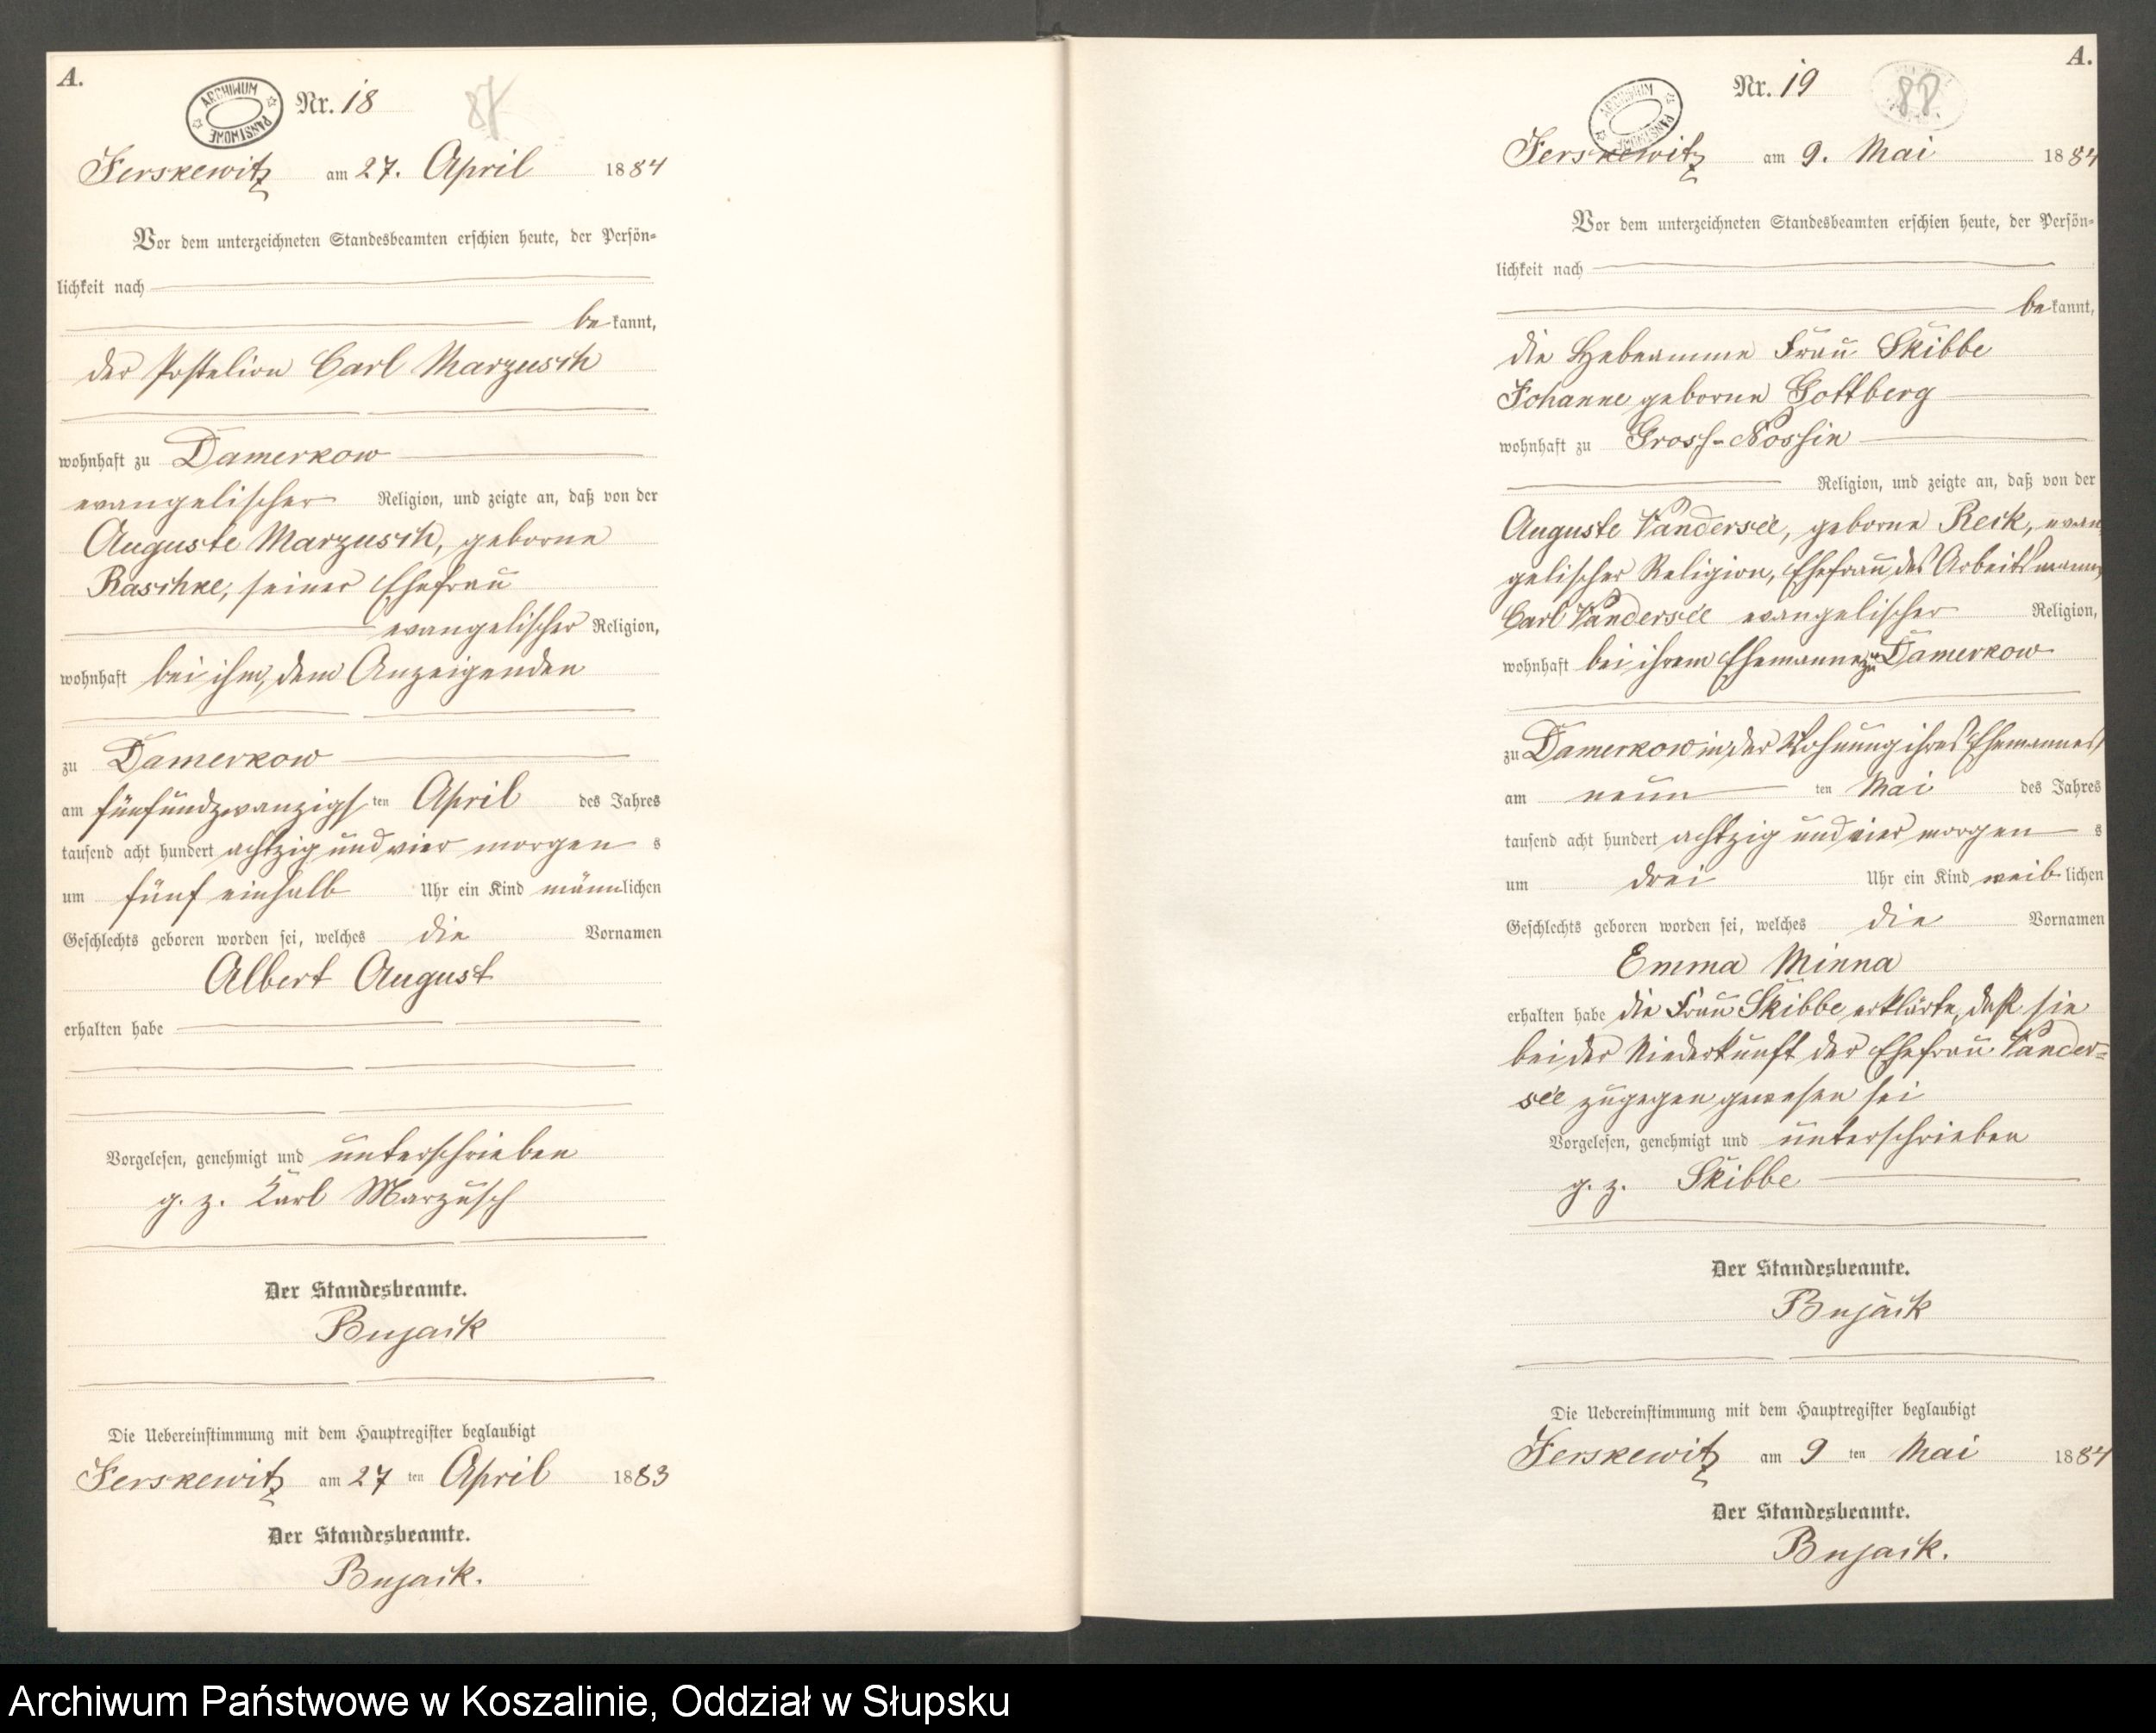 A.
ARCHIWUM PAŃSTWOWE
Nr. 18
87
Jerskewitz am 27. April 1884
Vor dem unterzeichneten Standesbeamten erschien heute, der Persön=
lichkeit nach
be kannt,
der Postelion Carl Marzusch
wohnhaft zu Damerkow
evangelischer Religion, und zeigte an, daß von der
Auguste Marzusch, geborne
Raschke, seiner Ehefrau
evangelischer Religion,
wohnhaft bei ihm, dem Anzeigenden
zu Damerkow
am fünfundzwanzigs ten April des Jahres
tausend acht hundert achtzig und vier morgen s
um fünf einhalb Uhr ein Kind männlichen
Geschlechts geboren worden sei, welches die Vornamen
Albert August
erhalten habe
Vorgelesen, genehmigt und unterschrieben
g. z. Karl Marzusch
Der Standesbeamte.
Bujack
Die Uebereinstimmung mit dem Hauptregister beglaubigt
Jerskewitz am 27 ten April 1883
Der Standesbeamte.
Bujack.
A.
ARCHIWUM PAŃSTWOWE
Nr. 19
88
Jerskewitz am 9. Mai 1884
Vor dem unterzeichneten Standesbeamten erschien heute, der Persön=
lichkeit nach
be kannt,
die Hebeamme Frau Skibbe
Johanne geborne Gottberg
wohnhaft zu Gross-Nossin
Religion, und zeigte an, daß von der
Auguste Vandersee, geborne Reck, evan
gelischer Religion, Ehefrau des Arbeitsmanns
Carl Vandersee evangelischer Religion,
wohnhaft bei ihrem Ehemanne zu Damerkow
zu Damerkow in der Wohnung ihres Ehemannes
am neun ten Mai des Jahres
tausend acht hundert achtzig und vier morgen s
um drei Uhr ein Kind weib lichen
Geschlechts geboren worden sei, welches die Vornamen
Emma Minna
erhalten habe die Frau Skibbe erklärte, daß sie
bei der Niederkunft der Ehefrau Vander=
see zugegen gewesen sei
Vorgelesen, genehmigt und unterschrieben
g. z. Skibbe
Der Standesbeamte.
Bujack
Die Uebereinstimmung mit dem Hauptregister beglaubigt
Jerskewitz am 9 ten Mai 1884
Der Standesbeamte.
Bujack.
Archiwum Państwowe w Koszalinie, Oddział w Słupsku